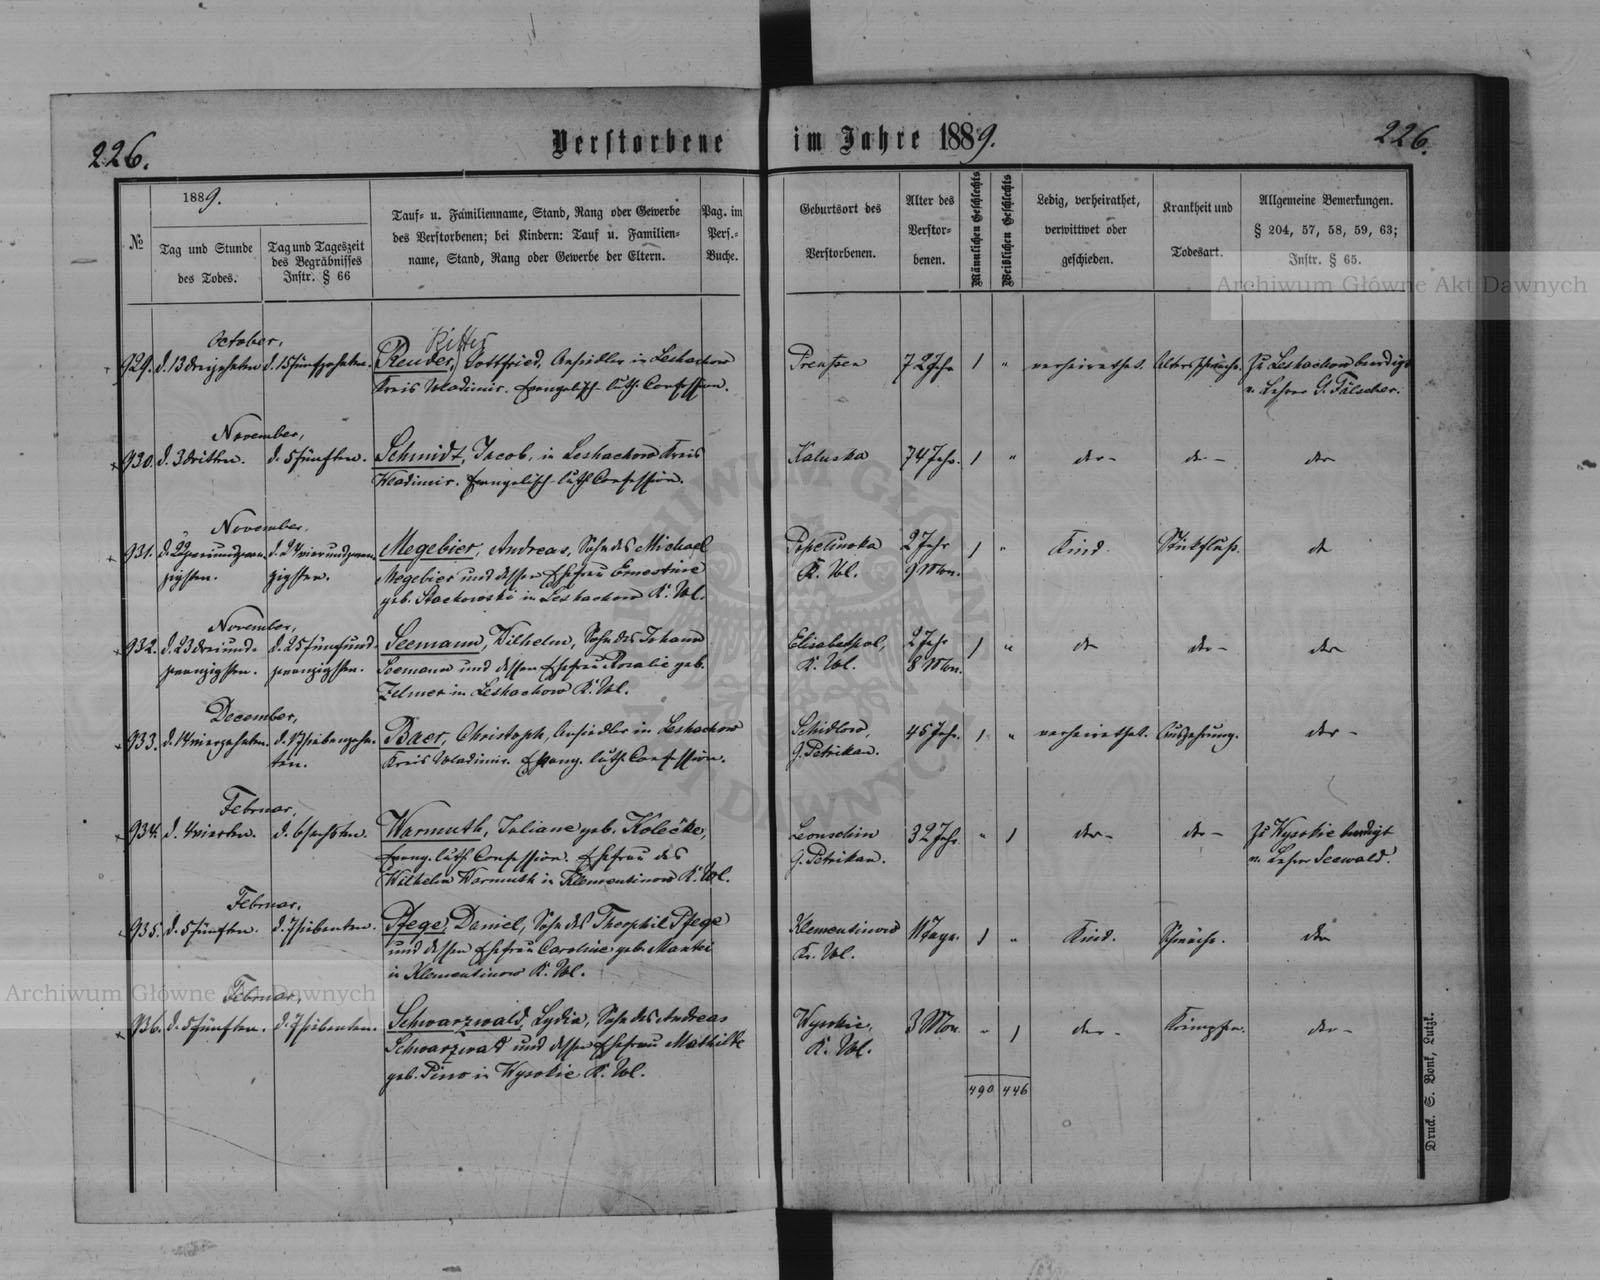 226.
Verstorbene im Jahre 1889.
226.
№
1889.
Tag und Stunde
des Todes.
Tag und Tageszeit
des Begräbnisses
Instr. § 66
Tauf- u. Familienname, Stand, Rang oder Gewerbe
des Verstorbenen; bei Kindern: Tauf u. Familien-
name, Stand, Rang oder Gewerbe der Eltern.
Pag. im
Pers.-
Buche.
Geburtsort des
Verstorbenen.
Alter des
Verstor-
benen.
Männlichen Geschlechts
Weiblichen Geschlechts
Ledig, verheirathet,
verwittwet oder
geschieden.
Krankheit und
Todesart.
Allgemeine Bemerkungen.
§ 204, 57, 58, 59, 63;
Instr. § 65.
Archiwum Główne Akt Dawnych
October,
929. d. 13 dreizehnten d. 15 fünfzehnten.
Ritter
Reuder, Gottfried, Ansiedler in Leshachow
Kreis Wladimir. Evangelisch-luth. Confession.
Preußen
72 Jahr
1
"
verheirathet.
Altersschwäche.
Zu Leshachow beerdigt
v. Lehrer G. Fälscher.
November,
930. d. 3 dritten. d. 5 fünften.
Schmidt, Jacob, in Leshachow Kreis
Wladimir. Evangelisch-luth. Confession.
Kaluska
74 Jahr.
1
"
dto-
dto-
dto
November.
931. d. 22 zweiundzwan-
zigsten.
d. 24 vierundzwan-
zigsten.
Megebier, Andreas, Sohn des Michael
Megebier und dessen Ehefrau Ernestine
geb. Stachowski in Leshachow K. Wl.
K. Wl.
2 Jahr
9 Mon.
1
"
Kind.
Stickfluß.
dto
November,
932. d. 23 dreiund-
zwanzigsten.
d. 25 fünfund-
zwanzigsten.
Seemann, Wilhelm, Sohn des Johann
Seemann und dessen Ehefrau Rosalie geb.
Zelmer in Leshachow K. Wl.
Elisabethpol,
K. Wl.
2 Jahr
8 Mon.
1
"
dto
dto-
dto
December,
933. d. 14 vierzehnten. d. 17 siebenzehn-
ten.
Baer, Christoph, Ansiedler in Leshachow
Kreis Wladimir. Evang. luth. Confession.
Schidlow,
G. Petrikau.
45 Jahr.
1
"
verheirathet.
Auszehrung.
dto-
Februar,
934. d. 4 vierten. d. 6 sechsten.
Warmuth, Juliane geb. Kolećke,
Evang. luth. Confession. Ehefrau des
Wilhelm Warmuth in Klementinow K. Wl.
G. Petrikau.
32 Jahr.
"
1
dto-
dto-
Zu Wysokie beerdigt
v. Lehrer Seewald.
Februar,
935. d. 5 fünften. d. 7 siebenten.
Pfege, Daniel, Sohn des Theophil Pfege
und dessen Ehefrau Caroline geb. Mantei
in Klementinow K. Wl.
Klementinow
Kr. Wl.
11 Tage.
1
"
Kind.
Schwäche.
dto
Archiwum Główne Akt Dawnych
Februar,
936. d. 5 fünften. d. 7 siebenten.
Schwarzwald, Lydia, Sohn des Andreas
Schwarzwald und dessen Ehefrau Mathilde
geb. Pino in Wysokie K. Wl.
Wysokie,
K. Wl.
3 Mon.
"
1
dto-
Krämpfen.
dto-
490 446
Druck. S. Bonk, Lutzk.